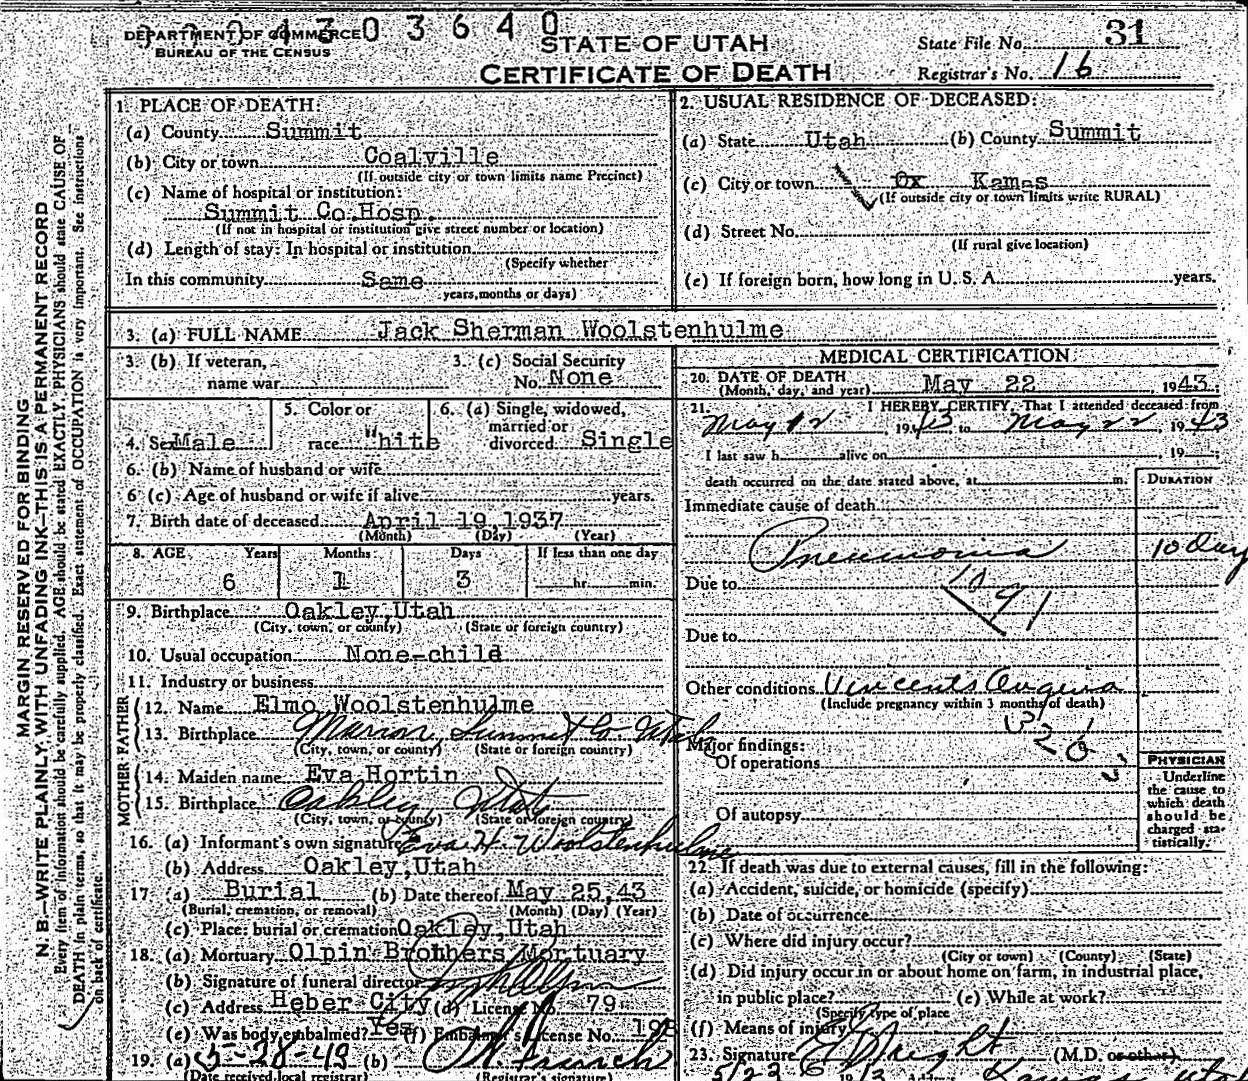 DEPARTMENT OF COMMERCE 0 3 6 4 0
BUREAU OF THE CENSUS
STATE OF UTAH
CERTIFICATE OF DEATH
State File No. 31
Registrar's No. 16
MARGIN RESERVED FOR BINDING
N. B.—WRITE PLAINLY, WITH UNFADING INK—THIS IS A PERMANENT RECORD
Every item of information should be carefully supplied. AGE should be stated EXACTLY. PHYSICIANS should state CAUSE OF
DEATH in plain terms, so that it may be properly classified. Exact statement of OCCUPATION is very important. See instructions
on back of certificate.
1. PLACE OF DEATH:
(a) County Summit
(b) City or town Coalville
(If outside city or town limits name Precinct)
(c) Name of hospital or institution:
Summit Co.Hosp.
(If not in hospital or institution give street number or location)
(d) Length of stay: In hospital or institution
(Specify whether
In this community Same
years, months or days)
2. USUAL RESIDENCE OF DECEASED:
(a) State Utah (b) County Summit
(c) City or town Ox Kamas
(If outside city or town limits write RURAL)
(d) Street No.
(If rural give location)
(e) If foreign born, how long in U. S. A. years.
3. (a) FULL NAME Jack Sherman Woolstenhulme
3. (b) If veteran,
name war
3. (c) Social Security
No. None
4. Sex Male
5. Color or
race "hite
6. (a) Single, widowed,
married or
divorced Single
6. (b) Name of husband or wife
6 (c) Age of husband or wife if alive years.
7. Birth date of deceased April 19,1937
(Month) (Day) (Year)
8. AGE Years Months Days If less than one day
6 1 3 hr. min.
9. Birthplace Oakley,Utah
(City, town, or county) (State or foreign country)
10. Usual occupation None-child
11. Industry or business
FATHER
12. Name Elmo Woolstenhulme
13. Birthplace Marion, Summit Co. Utah
(City, town, or county) (State or foreign country)
MOTHER
14. Maiden name Eva Hortin
15. Birthplace Oakley, Utah
(City, town, or county) (State or foreign country)
16. (a) Informant's own signature Eva H. Woolstenhulme
(b) Address Oakley,Utah
17 (a) Burial (b) Date thereof May 25,43
(Burial, cremation, or removal) (Month) (Day) (Year)
(c) Place: burial or cremation Oakley,Utah
18. (a) Mortuary Olpin Brothers Mortuary
(b) Signature of funeral director
(c) Address Heber City (d) License No. 79
(e) Was body embalmed? Yes (f) Embalmer's License No. 198
19. (a) 5-28-43 (b)
(Date received local registrar) (Registrar's signature)
MEDICAL CERTIFICATION
20. DATE OF DEATH
(Month, day, and year) May 22 1943.;
21. I HEREBY CERTIFY, That I attended deceased from
May 12, 1943 to May 22 1943
I last saw h alive on 19
death occurred on the date stated above, at m.
DURATION
Immediate cause of death
Pneumonia 10 days
Due to
1091
Due to
Other conditions Vincents Angina
(Include pregnancy within 3 months of death)
Major findings:
Of operations
Of autopsy
PHYSICIAN
Underline
the cause to
which death
should be
charged sta-
tistically.
22. If death was due to external causes, fill in the following:
(a) Accident, suicide, or homicide (specify)
(b) Date of occurrence
(c) Where did injury occur?
(City or town) (County) (State)
(d) Did injury occur in or about home on farm, in industrial place,
in public place? (e) While at work?
(Specify type of place
(f) Means of injury
23. Signature (M.D. or other)
Kamas Utah